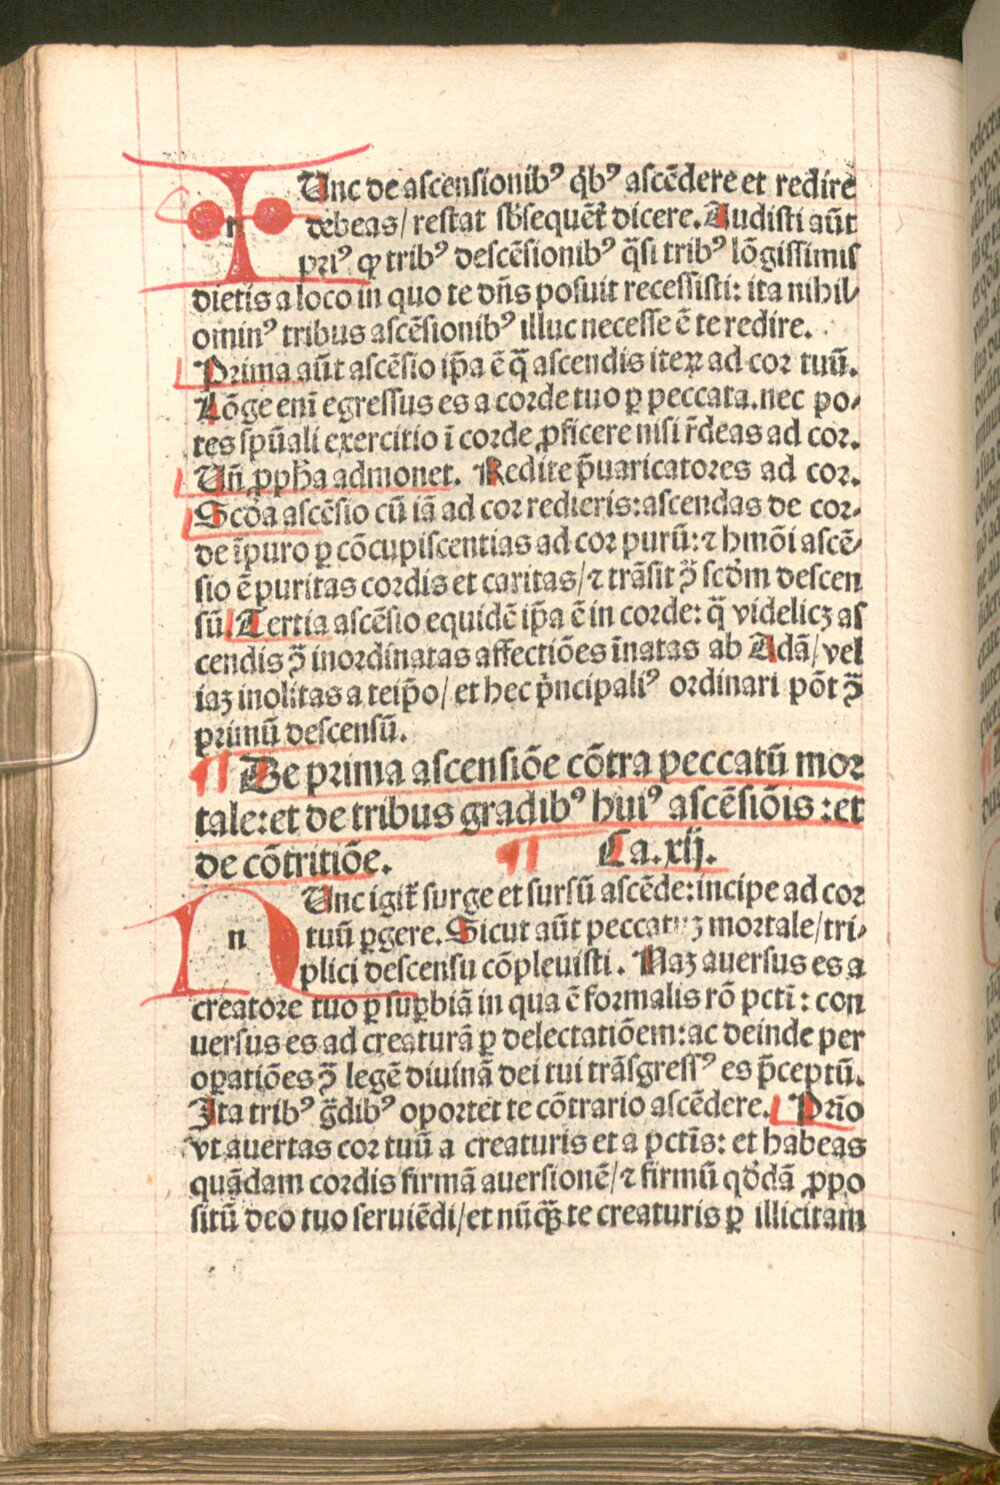 Unc de ascensionibꝰ qͥbꝰ ascēdere et redire
n debeas/ restat sb̄sequēt̄ dicere. Audisti aūt
priꝰ ꝙ tribꝰ descēsionibꝰ q̄si tribꝰ lōgissimis
dietis a loco in quo te dn̄s posuit recessisti: ita nihil⸗
ominꝰ tribus ascēsionibꝰ illuc necesse ē te redire.
Prima aūt ascēsio ip̄a ē q̄ ascendis iteꝝ ad cor tuū.
Lōge eni̅ egressus es a corde tuo ꝑ peccata. nec po⸗
tes sp̄uali exercitio ī corde ꝓficere nisi r̄deas ad cor.
Un̄ ꝓpha admonet. Redite p̄uaricatores ad cor.
Scd̄a ascēsio cū iā ad cor redieris: ascendas de cor⸗
de īpuro ꝑ cōcupiscentias ad cor purū: ⁊ hmōi ascē⸗
sio ē puritas cordis et caritas/ ⁊ trāsit ꝯ̄ scd̄m descen
sū. Tertia ascēsio equidē ip̄a ē in corde: q̄ videlicꝫ as
cendis ꝯ̄ inordinatas affectiōes īnatas ab Adā/ vel
iaꝫ inolitas a teip̄o/ et hec pͥncipaliꝰ ordinari pōt ꝯ̄
primū descensū.
¶ De prima ascensiōe cōtra peccatū mor
tale: et de tribus gradibꝰ huiꝰ ascēsiōis: et
de cōtritiōe. ¶ Ca. xij.
Unc igit̄ surge et sursū ascēde: incipe ad cor
n tuū ꝑgere. Sicut aūt peccatuꝫ mortale/ tri⸗
plici descensu cōpleuisti. Naꝫ auersus es a
creatore tuo ꝑ suꝑbiā in qua ē formalis rō pctī: con
uersus es ad creaturā ꝑ delectatiōem: ac deinde per
oꝑatiōes ꝯ̄ legē diuinā dei tui trāsgressꝰ es p̄ceptū.
Ita tribꝰ ḡdibꝰ oportet te cōtrario ascēdere. Prīo
vt auertas cor tuū a creaturis et a pctīs: et habeas
quādam cordis firmā auersionē/ ⁊ firmū qd̓dā ꝓpo
situ̅ deo tuo seruiēdi/ et nūꝗ̄ te creaturis ꝑ illicitam